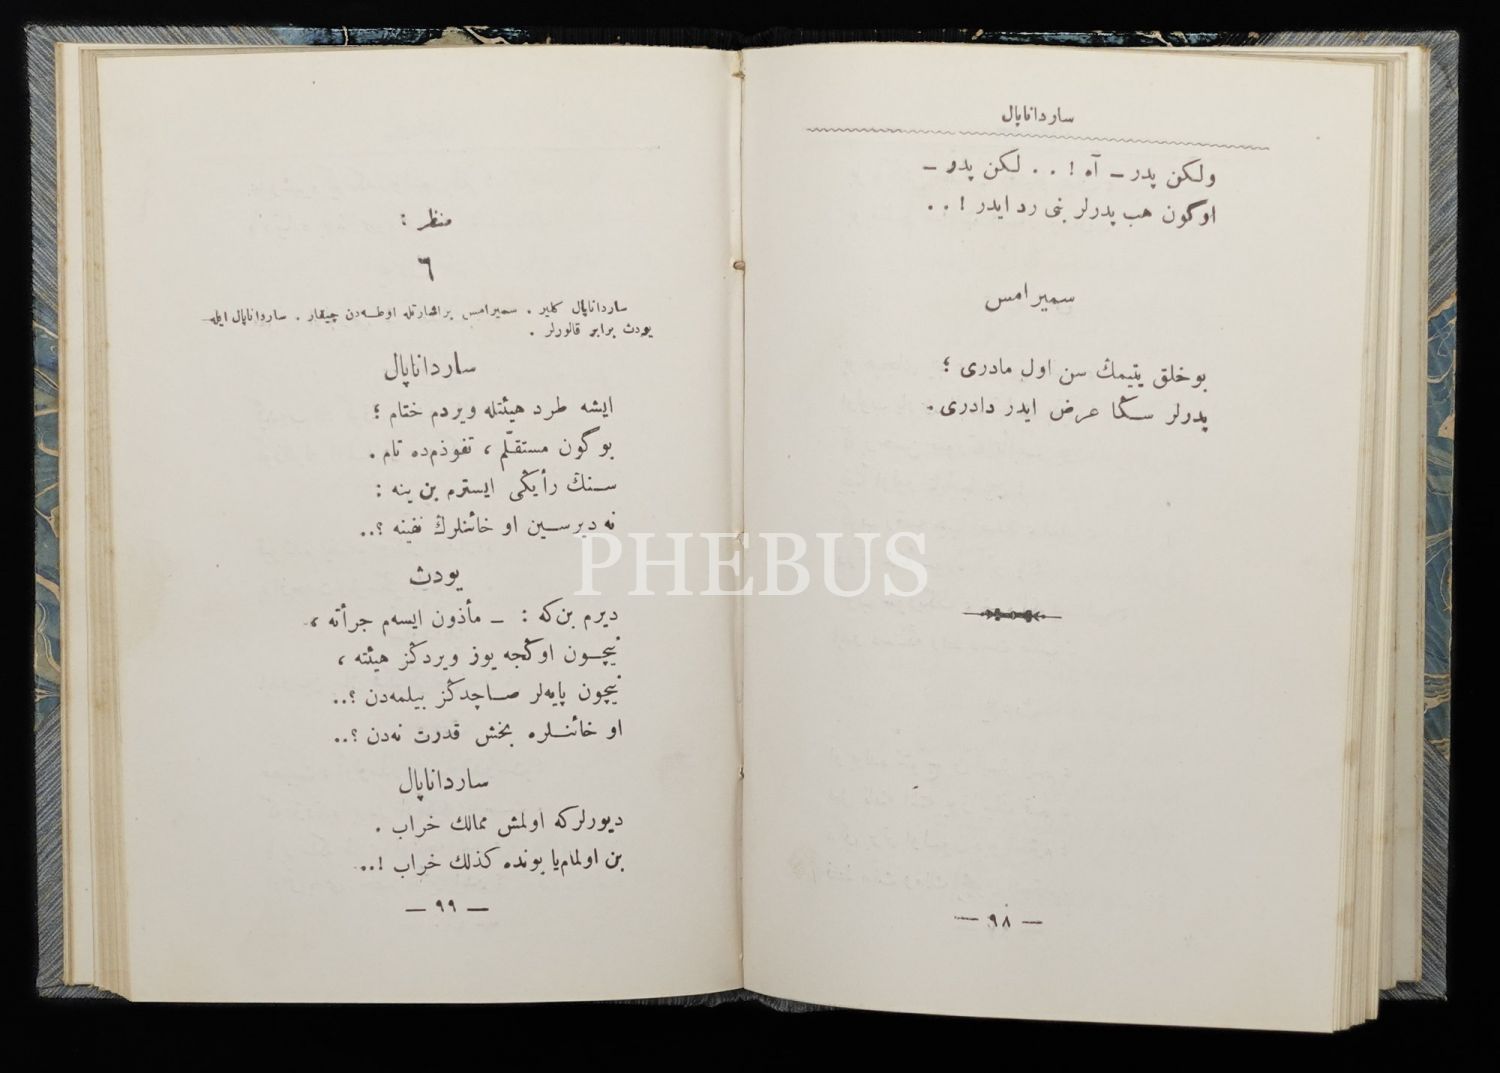 سارداناپال
ولكن پدر ـ آه ! . . لكن پدر ـ
اوكون هب پدرلر بنی رد ایدر ! . .
سمیرامس
بوخلق یتیمك سن اول مادری ؛
پدرلر سڭا عرض ایدر دادری .
— ٩٨ —
منظر :
٦
سارداناپال كلیر . سمیرامس براشارتله اوطه‌دن چیقار . سارداناپال ایله
یودث برابر قالورلر .
سارداناپال
ایشه طرد هیئتله ویردم ختام ؛
بوگون مستقلّم ، نفوذمده تام .
سنك رأیڭی ایسترم بن ینه :
نه دیرسین او خائنلرڭ نفینه ؟ ..
یودث
دیرم بن‌كه : ـ مأذون ایسه‌م جرأته ،
نیچون اوڭجه یوز ویردڭز هیئته ،
نیچون پایه‌لر صاچدڭز بیلمه‌دن ؟ ..
او خائنلره بخش قدرت نه‌دن ؟ ..
سارداناپال
دیورلركه اولمش ممالك خراب .
بن اولمام‌یا بونده كذلك خراب ! ..
— ٩٩ —
PHEBUS